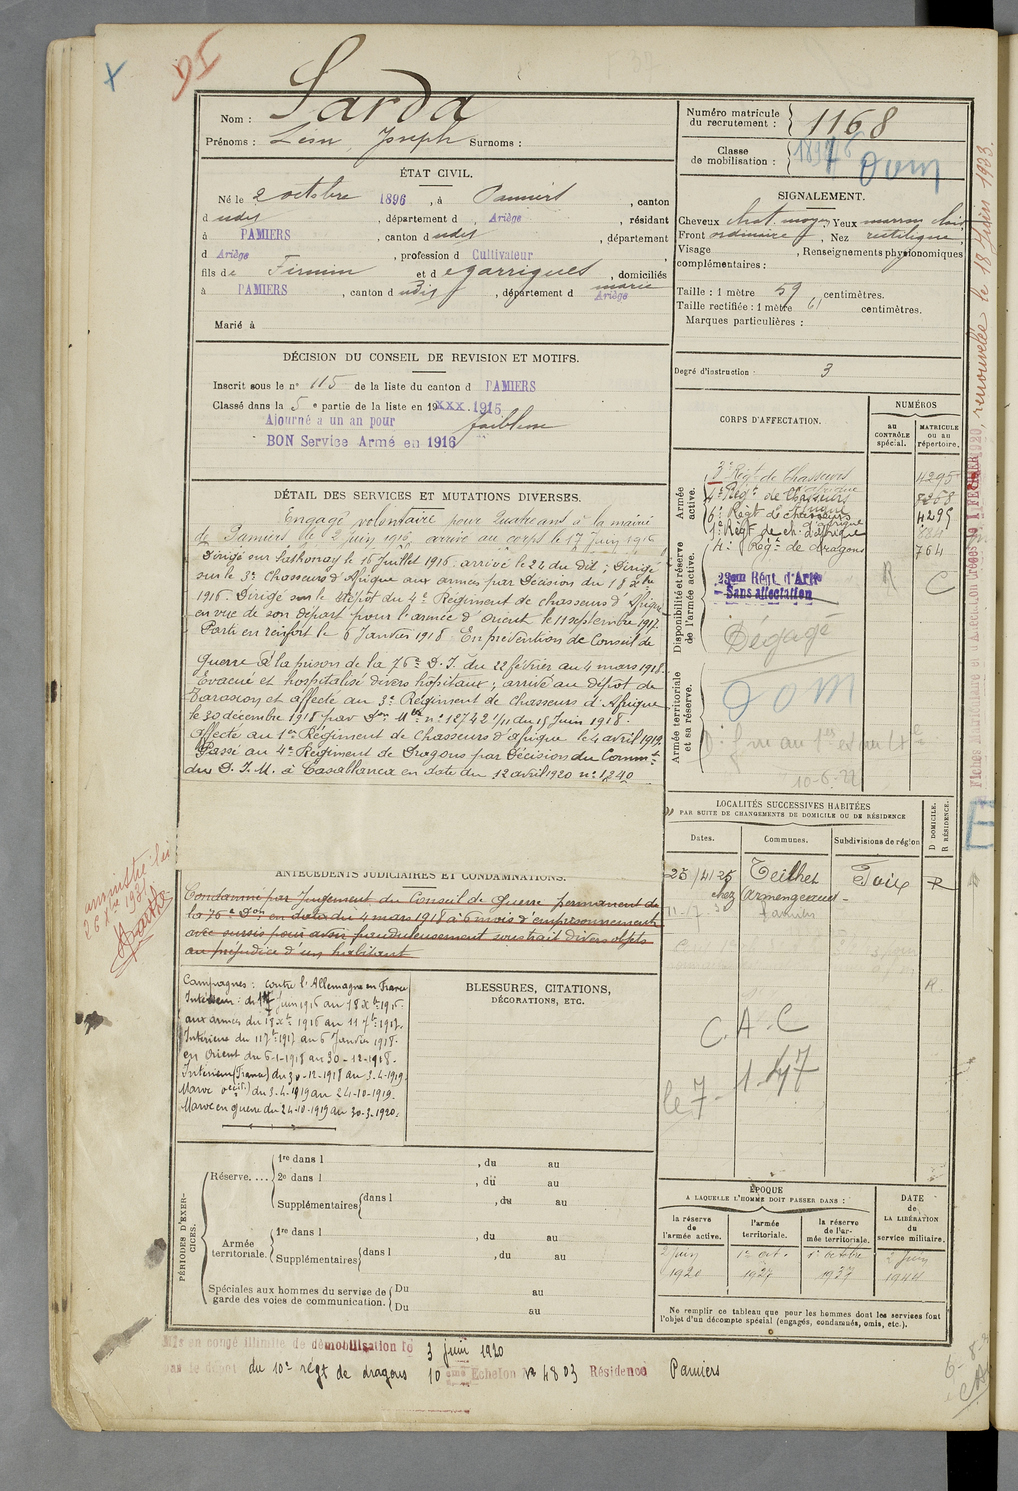 95
X
Nom : Sarda
Prénoms : Léon, Joseph Surnoms :
Numéro matricule du recrutement : 1168
Classe de mobilisation :
Dom
ÉTAT CIVIL.
Né le 2 octobre 1896, à Pamiers, canton
d udit, département d Ariège, résidant
à PAMIERS, canton d udit, département
d Ariège, profession d Cultivateur
fils de Firmin et d egarrigues marie, domiciliés
à PAMIERS, canton d udit, département d Ariège
Marié à
SIGNALEMENT.
Cheveux chat. moyen, Yeux marron clair
Front ordinaire, Nez rectiligne,
Visage , Renseignements physionomiques
complémentaires :
Taille : 1 mètre 59 centimètres.
Taille rectifiée : 1 mètre 61 centimètres.
Marques particulières :
Degré d'instruction : 3
DÉCISION DU CONSEIL DE REVISION ET MOTIFS.
Inscrit sous le n° 115 de la liste du canton d PAMIERS
Classé dans la 5 e partie de la liste en 19xxx 1915
Ajourné a un an pour faiblesse
BON Service Armé en 1916
DÉTAIL DES SERVICES ET MUTATIONS DIVERSES.
Engagé volontaire pour quatre ans à la mairie
de Pamiers le 2 juin 1916, arrivé au corps le 17 juin 1916
Dirigé sur Sathonay le 16 juillet 1916 arrivé le 24 du dit ; Dirigé
sur le 3e Chasseurs d'Afrique aux armées par Décision du 18 Xbre
1916. Dirigé sur le dépôt du 4e Régiment de chasseurs d'Afrique
en vue de son départ pour l'armée d'Orient le 11 septembre 1917.
Parti en renfort le 6 Janvier 1918. En prévention de Conseil de
Guerre à la prison de la 76e D.I. du 22 février au 4 mars 1918.
Evacué et hospitalisé divers hôpitaux ; arrivé au dépôt de
Tarascon et affecté au 3e Régiment de chasseurs d'Afrique
le 30 décembre 1918 par Don Mlle n° 12742 1/11 du 15 Juin 1918.
Affecté au 1er Régiment de Chasseurs d'Afrique le 4 avril 1919.
Passé au 4e Régiment de Dragons par Décision du Commt
du D.I.M. à Casablanca en date du 12 avril 1920 n° 1240
CORPS D'AFFECTATION.
NUMÉROS
au CONTRÔLE spécial.
MATRICULE ou au répertoire.
Armée active.
3e Régt de Chasseurs d'Afrique 4295
4e Régt de Chasseurs d'Afrique 7268
6e Régt de chasseurs d'Afrique 4295
1er Régt de ch. d'Afrique
4e Régt de dragons 764
Disponibilité et réserve de l'armée active.
23eme Régt. d'Artie R C
Sans affectation
Dégagé
Armée territoriale et sa réserve.
DOM
10-6-27
ANTÉCÉDENTS JUDICIAIRES ET CONDAMNATIONS.
Condamné par Jugement du Conseil de Guerre permanent de
la 76e Don en date du 4 mars 1918 à 6 mois d'emprisonnement
avec sursis pour avoir frauduleusement soustrait divers objets
au préjudice d'un habitant
amnistié
LOCALITÉS SUCCESSIVES HABITÉES
PAR SUITE DE CHANGEMENTS DE DOMICILE OU DE RÉSIDENCE
D DOMICILE.
R RÉSIDENCE.
Dates. Communes. Subdivisions de région
25/4/25 Teilhet Foix R
chez Armengaud
Pamiers
R.
C. A. C
le 7 - 1-47
Campagnes : contre l'Allemagne en France
Intérieur : du 17 juin 1916 au 18 Xbre 1916.
aux armées du 18 Xbre 1916 au 11 7bre 1917.
Intérieur du 11 7bre 1917 au 6 Janvier 1918.
en Orient du 6-1-1918 au 30-12-1918.
Intérieur (France) du 30-12-1918 au 3-4-1919.
Maroc occit.) du 3-4-1919 au 24-10-1919.
Maroc en guerre du 24-10-1919 au 30-3-1920.
BLESSURES, CITATIONS,
DÉCORATIONS, ETC.
PÉRIODES D'EXERCICES.
Réserve.... 1re dans l , du au
2e dans l , du au
Supplémentaires dans l , du au
Armée territoriale. 1re dans l , du au
Supplémentaires dans l , du au
Spéciales aux hommes du service de garde des voies de communication. Du au
Du au
ÉPOQUE
A LAQUELLE L'HOMME DOIT PASSER DANS :
DATE de LA LIBÉRATION du service militaire.
la réserve de l'armée active.
l'armée territoriale.
la réserve de l'armée territoriale.
2 juin 1920
1er oct. 1927
1er octobre 1937
2 Juin 1944
Ne remplir ce tableau que pour les hommes dont les services font
l'objet d'un décompte spécial (engagés, condamnés, omis, etc.).
Mis en congé illimité de démobilisation le 3 juin 1920
par le dépôt du 10e régt de dragons 10 eme Echelon N° 4803 Résidence Pamiers
renouvelée le 18 Juin 1933.